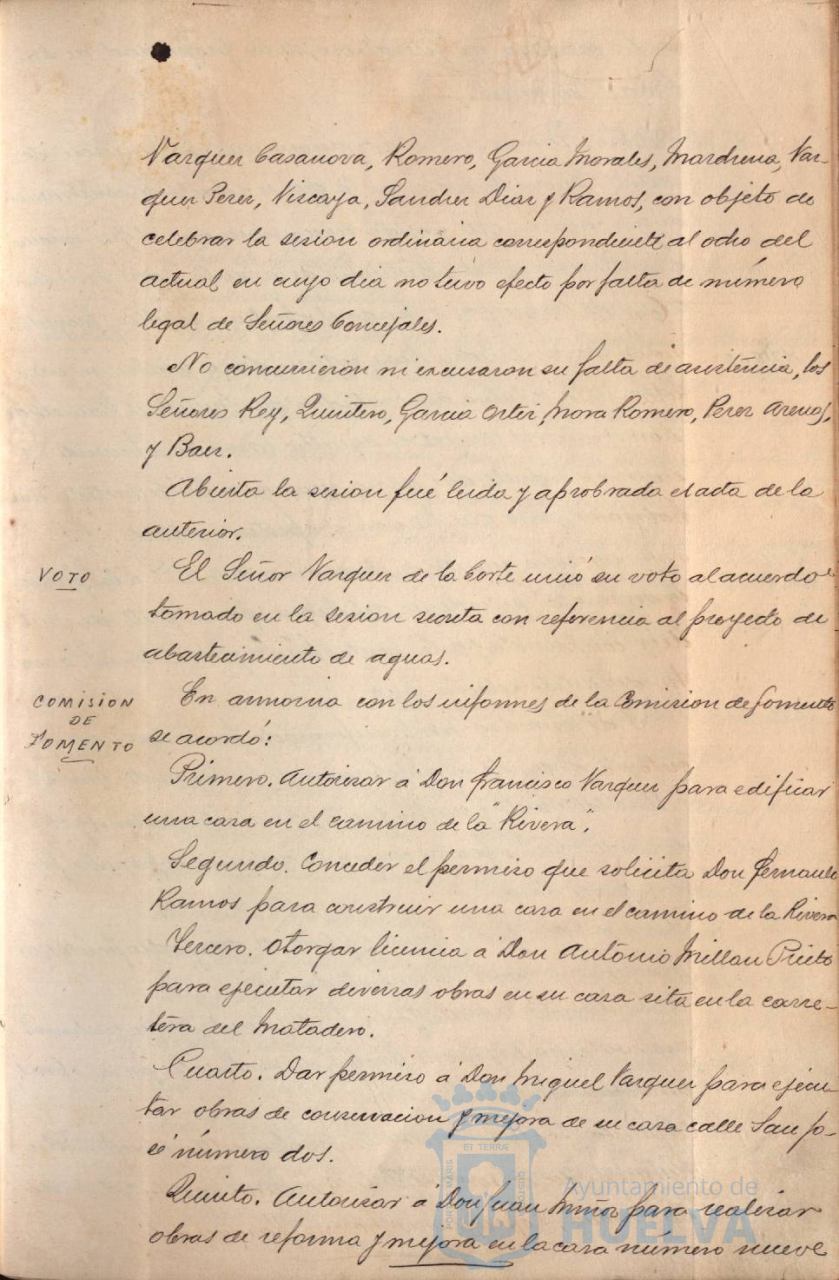 Vazquez Casanova, Romero, Garcia Morales, Mardrena, Vaz-
quez Perez, Viscaya, Sanchez Diaz y Ramos, con objeto de
celebrar la sesion ordinaria correspondiente al ocho del
actual en cuyo dia no tuvo efecto por falta de número
legal de Señores Concejales.
No concurrieron ni excusaron su falta de asistencia, los
Señores Rey, Quintero, Garcia Ortiz, Mora Romero, Perez Arenas,
y Baez.
Abierta la sesion fué leida y aprobada el acta de la
anterior.
VOTO
El Señor Vazquez de la Corte unió su voto al acuerdo
tomado en la sesion secreta con referencia al proyecto de
abastecimiento de aguas.
COMISION
DE
FOMENTO
En armonia con los informes de la Comision de fomento
se acordó:
Primero. Autorizar á Don Francisco Vazquez para edificar
una casa en el camino de la "Rivera".
Segundo. Conceder el permiso que solicita Don Fernando
Ramos para construir una casa en el camino de la Rivera
Tercero. Otorgar licencia á Don Antonio Millan Prieto
para ejecutar diversas obras en su casa sita en la carre-
tera del Matadero.
Cuarto. Dar permiso á Don Miguel Vazquez para ejecu-
tar obras de conservacion y mejora de su casa calle San Jo-
sé número dos.
Quinto. Autorizar á Don Juan para realizar
obras de reforma y mejora en la casa número nueve
PORTUS MARIS
ET TERRÆ
CUSTODIA
Ayuntamiento de
HUELVA